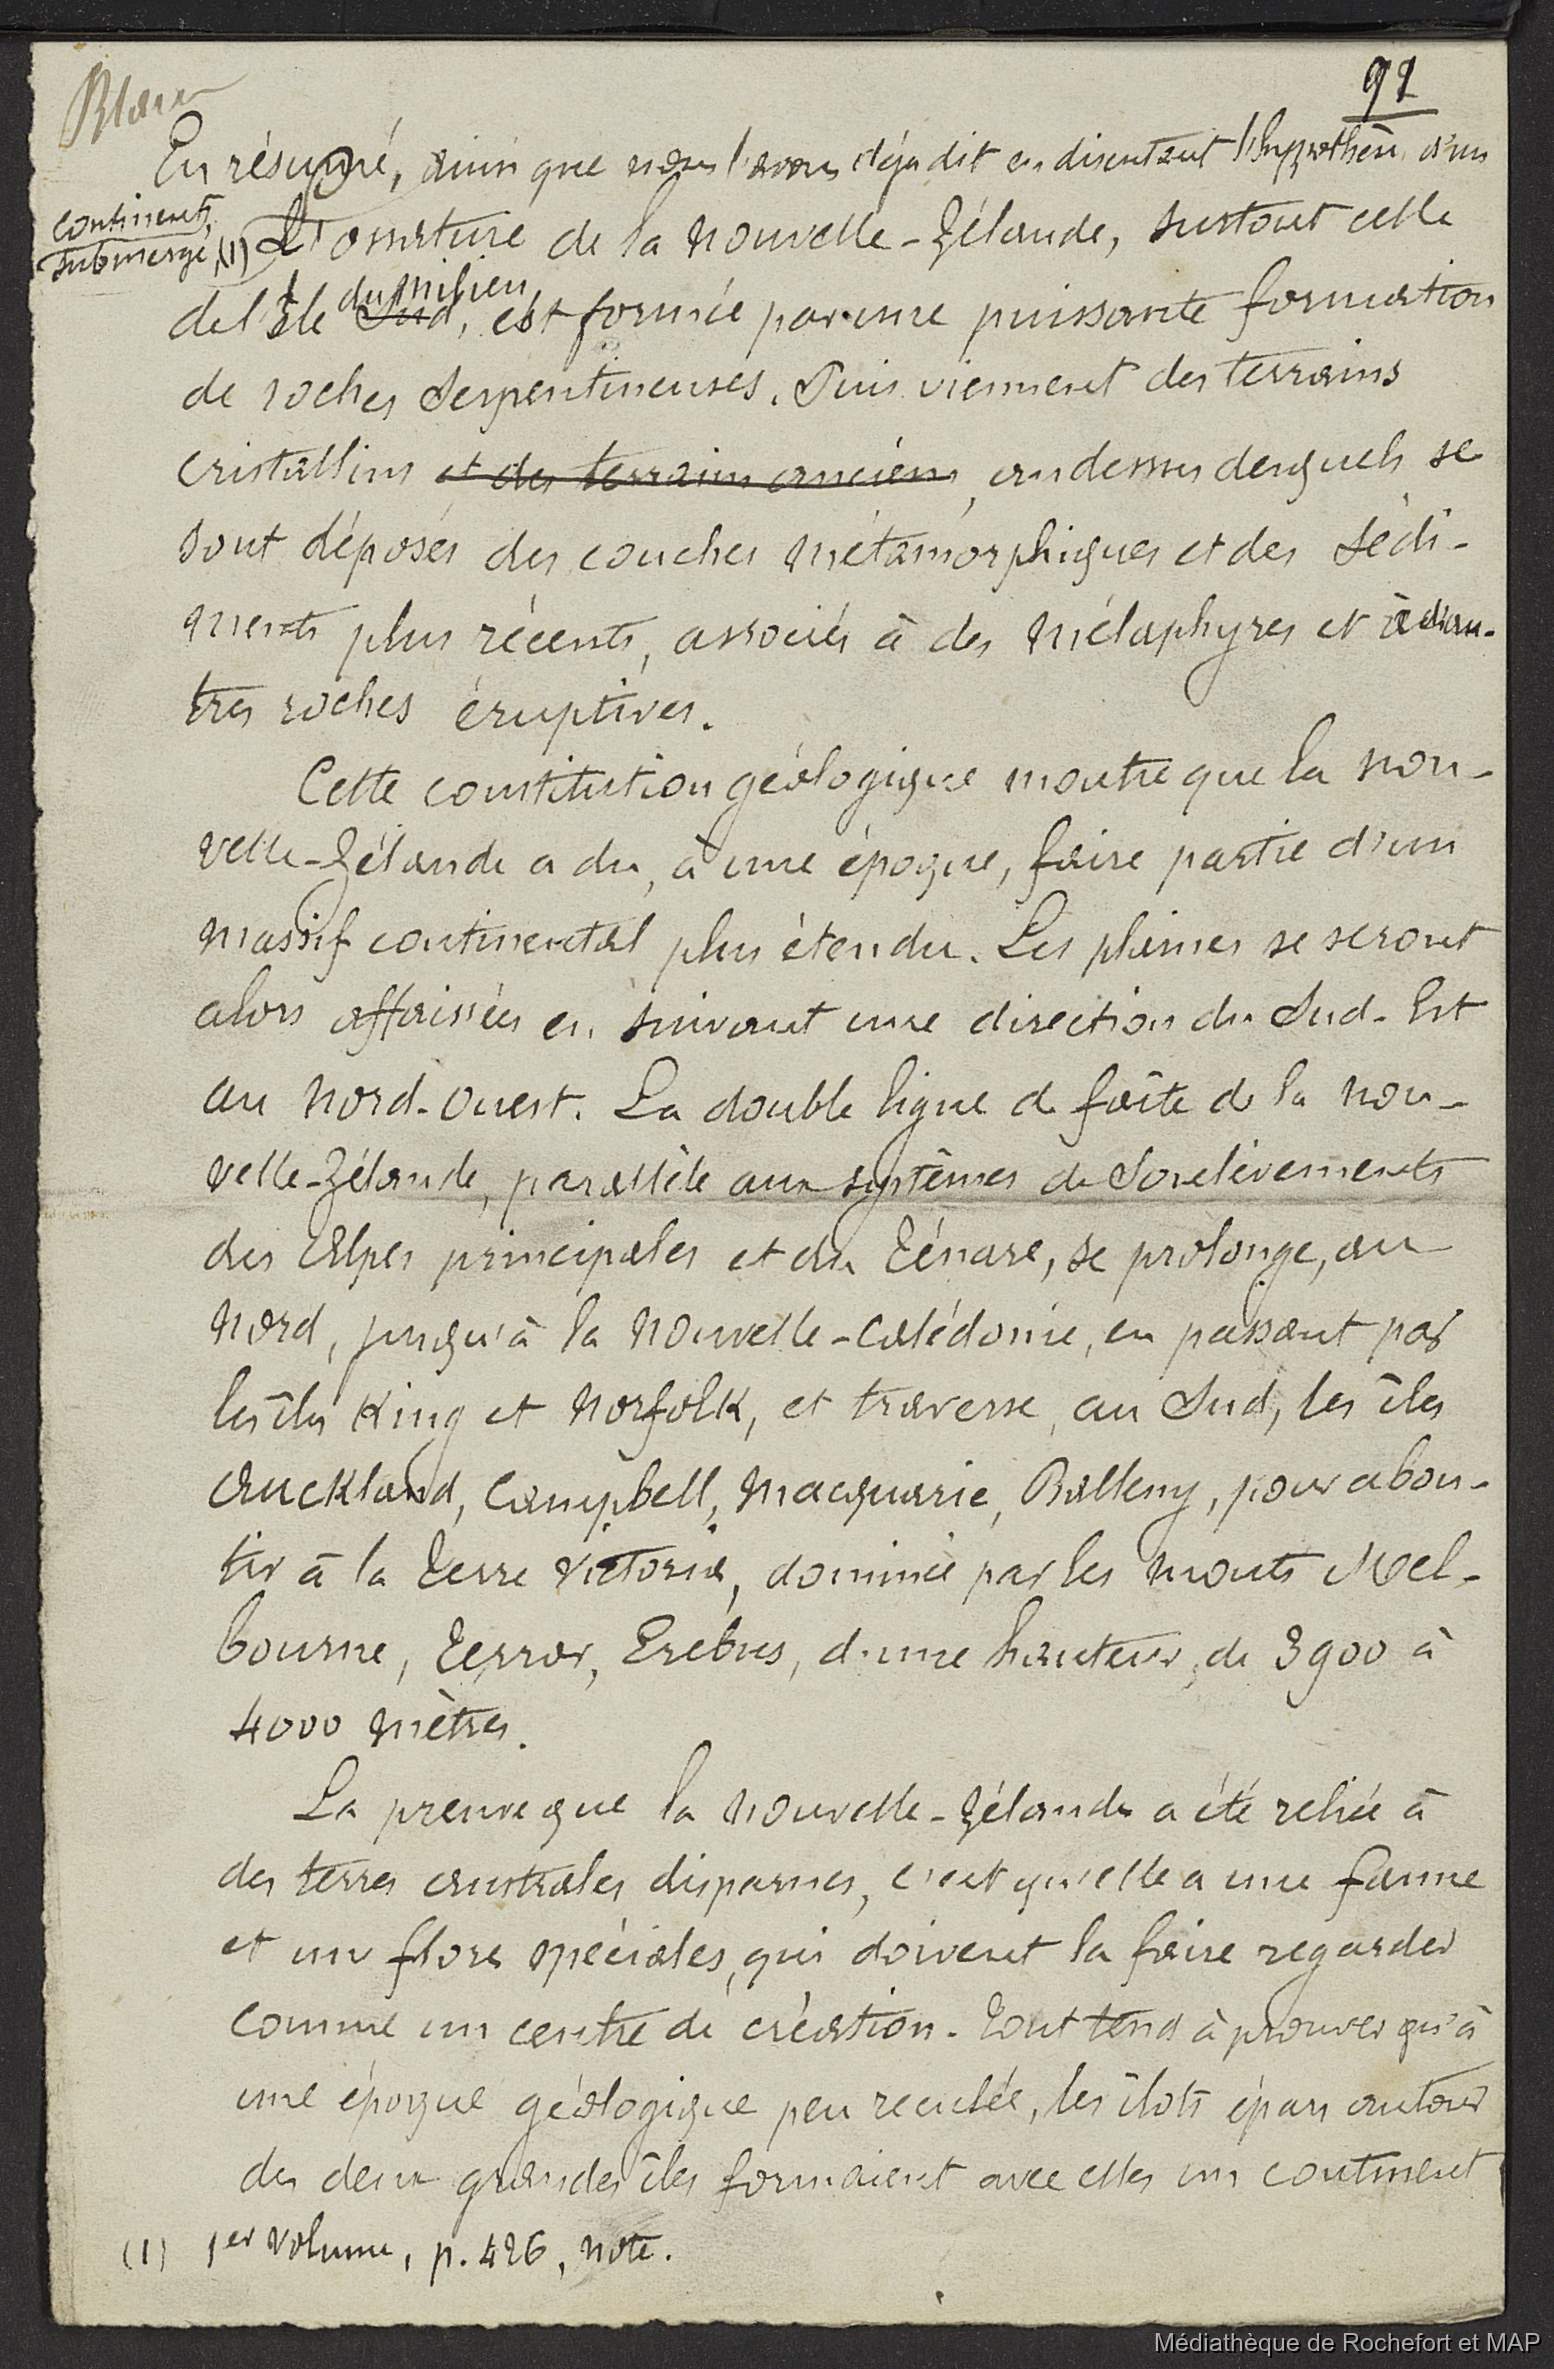 Blanc
91
En résumé, ainsi que nous l'avons déjà dit en discutant l'hypothèse d'un
continent
submergé, (1) l'ossature de la Nouvelle-Zélande, surtout celle
du milieu
de l'île Sud, est formée par une puissante formation
de roches serpentineuses. Puis viennent des terrains
cristallins et des terrains anciens, au dessus desquels se
sont déposés des couches métamorphiques et des sédi-
ments plus récents, associés à des mélaphyres et à d'au-
tres roches éruptives.
Cette constitution géologique montre que la Nou-
velle-Zélande a du, à une époque, faire partie d'un
massif continental plus étendu. Les plaines se seront
alors affaissées en suivant une direction du Sud-Est
au Nord-Ouest. La double ligne de faîte de la Nou-
velle-Zélande, parallèle aux systèmes de soulèvements
des Alpes principales et du Ténare, se prolonge, au
Nord, jusqu'à la Nouvelle-Calédonie, en passant par
les îles King et Norfolk, et traverse, au Sud, les îles
Auckland, Campbell, Macquarie, Balleny, pour abou-
tir à la Terre Victoria, dominée par les monts Mel-
bourne, Terror, Erebus, d'une hauteur de 3900 à
4000 mètres.
La preuve que la Nouvelle-Zélande a été reliée à
des terres australes disparues, c'est qu'elle a une faune
et une flore spéciales, qui doivent la faire regarder
comme un centre de création. Tout tend à prouver qu'à
une époque géologique peu reculée, les îlots épars autour
des deux grandes îles formaient avec elles un continent
(1) 1er volume, p. 426, note.
Médiathèque de Rochefort et MAP